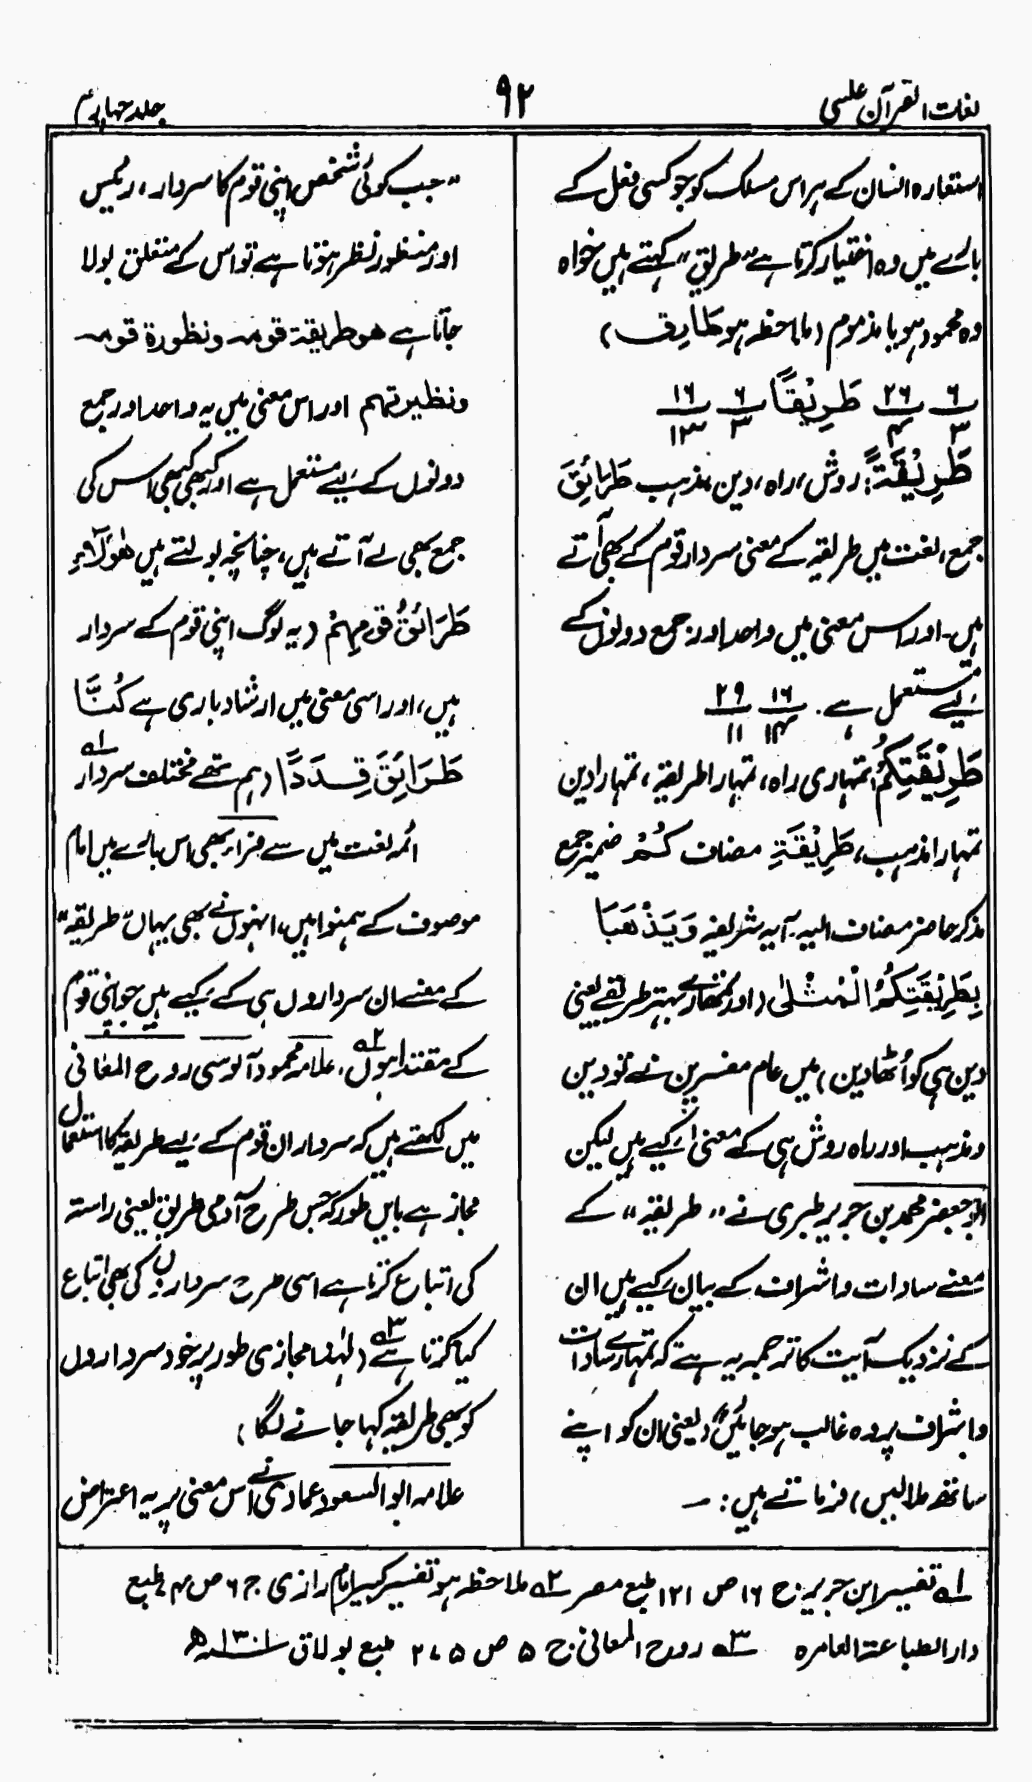 لغات القرآن علسی
۹۲
جلد چہارم
استعارہ انسان کے ہر اس مسلک کو جو کسی فعل کے
بارے میں وہ اختیار کرتا ہے "طریق" کہتے ہیں خواہ
وہ محمود ہو یا مذموم (ملاحظہ ہو طَارِق)
۶/۳ ۲۶/۴ طَرِیْقًا ۶/۳ ۱۶/۱۳
طَرِیْقَۃً: روش، راہ، دین، مذہب طَرَائِقَ
جمع، لغت میں طریقہ کے معنی سردار قوم کے بھی آتے
ہیں۔ اور اس معنی میں واحد اور جمع دونوں کے
لیے مستعمل ہے۔ ۱۶/۱۴ ۲۹/۱۱
طَرِیْقَتِکُمُ: تمہاری راہ، تمہارا طریقہ، تمہارا دین
تمہارا مذہب، طَرِیْقَۃِ مضاف کُمْ ضمیر جمع
مذکر حاضر مضاف الیہ۔ آیہ شریفہ وَیَذْھَبَا
بِطَرِیْقَتِکُمُ الْمُثْلٰی (اور تمھارے بہتر طریقے یعنی
دین ہی کو اُٹھا دیں) میں عام مفسرین نے تو دین
و مذہب اور راہ روش ہی کے معنی کیے ہیں لیکن
ابو جعفر محمد بن جریر طبری نے "طریقہ" کے
معنے سادات و اشراف کے بیان کیے ہیں ان
کے نزدیک آیت کا ترجمہ یہ ہے کہ تمہارے سادات
و اشراف پر وہ غالب ہو جائیں" (یعنی ان کو اپنے
ساتھ ملا لیں) فرماتے ہیں: ـــ
"جب کوئی شخص اپنی قوم کا سردار، رئیس
اور منظور نظر ہوتا ہے تو اس کے متعلق بولا
جاتا ہے ھو طریقۃ قومہ و نظورۃ قومہ
و نظیرتھم اور اس معنی میں یہ واحد اور جمع
دونوں کے لیے مستعمل ہے اور کبھی کبھی اس کی
جمع بھی لے آتے ہیں، چنانچہ بولتے ہیں ھٰؤُلَاءِ
طَرَائِقُ قومِھِمْ (یہ لوگ اپنی قوم کے سردار
ہیں، اور اسی معنی میں ارشاد باری ہے کُنَّا
طَرَائِقَ قِدَدًا (ہم تھے مختلف سردار ۱ہ
ائمہ لغت میں سے فراء بھی اس بارے میں امام
موصوف کے ہمنوا ہیں، انہوں نے بھی یہاں "طریقہ"
کے معنے ان سرداروں ہی کے کیے ہیں جو اپنی قوم
کے مقتدا ہوں ۲ہ، علامہ محمود آلوسی روح المعانی
میں لکھتے ہیں کہ سرداران قوم کے لیے طریقہ کا استعمال
مجاز ہے بایں طور کہ جس طرح آدمی طریق یعنی راستہ
کی اتباع کرتا ہے اسی طرح سرداروں کی بھی اتباع
کیا کرتا ہے ۳ہ (لہٰذا مجازی طور پر خود سرداروں
کو بھی طریقہ کہا جانے لگا)
علامہ ابوالسعود عمادی نے اس معنی پر یہ اعتراض
۱ہ تفسیر ابن جریر ج ۱۶ ص ۱۲۱ طبع مصر ۲ہ ملاحظہ ہو تفسیر کبیر امام رازی ج ۶ ص ۴۰ طبع
دار الطباعۃ العامرہ ۳ہ روح المعانی ج ۵ ص ۲۷۵ طبع بولاق ۱۳۰۱ھ